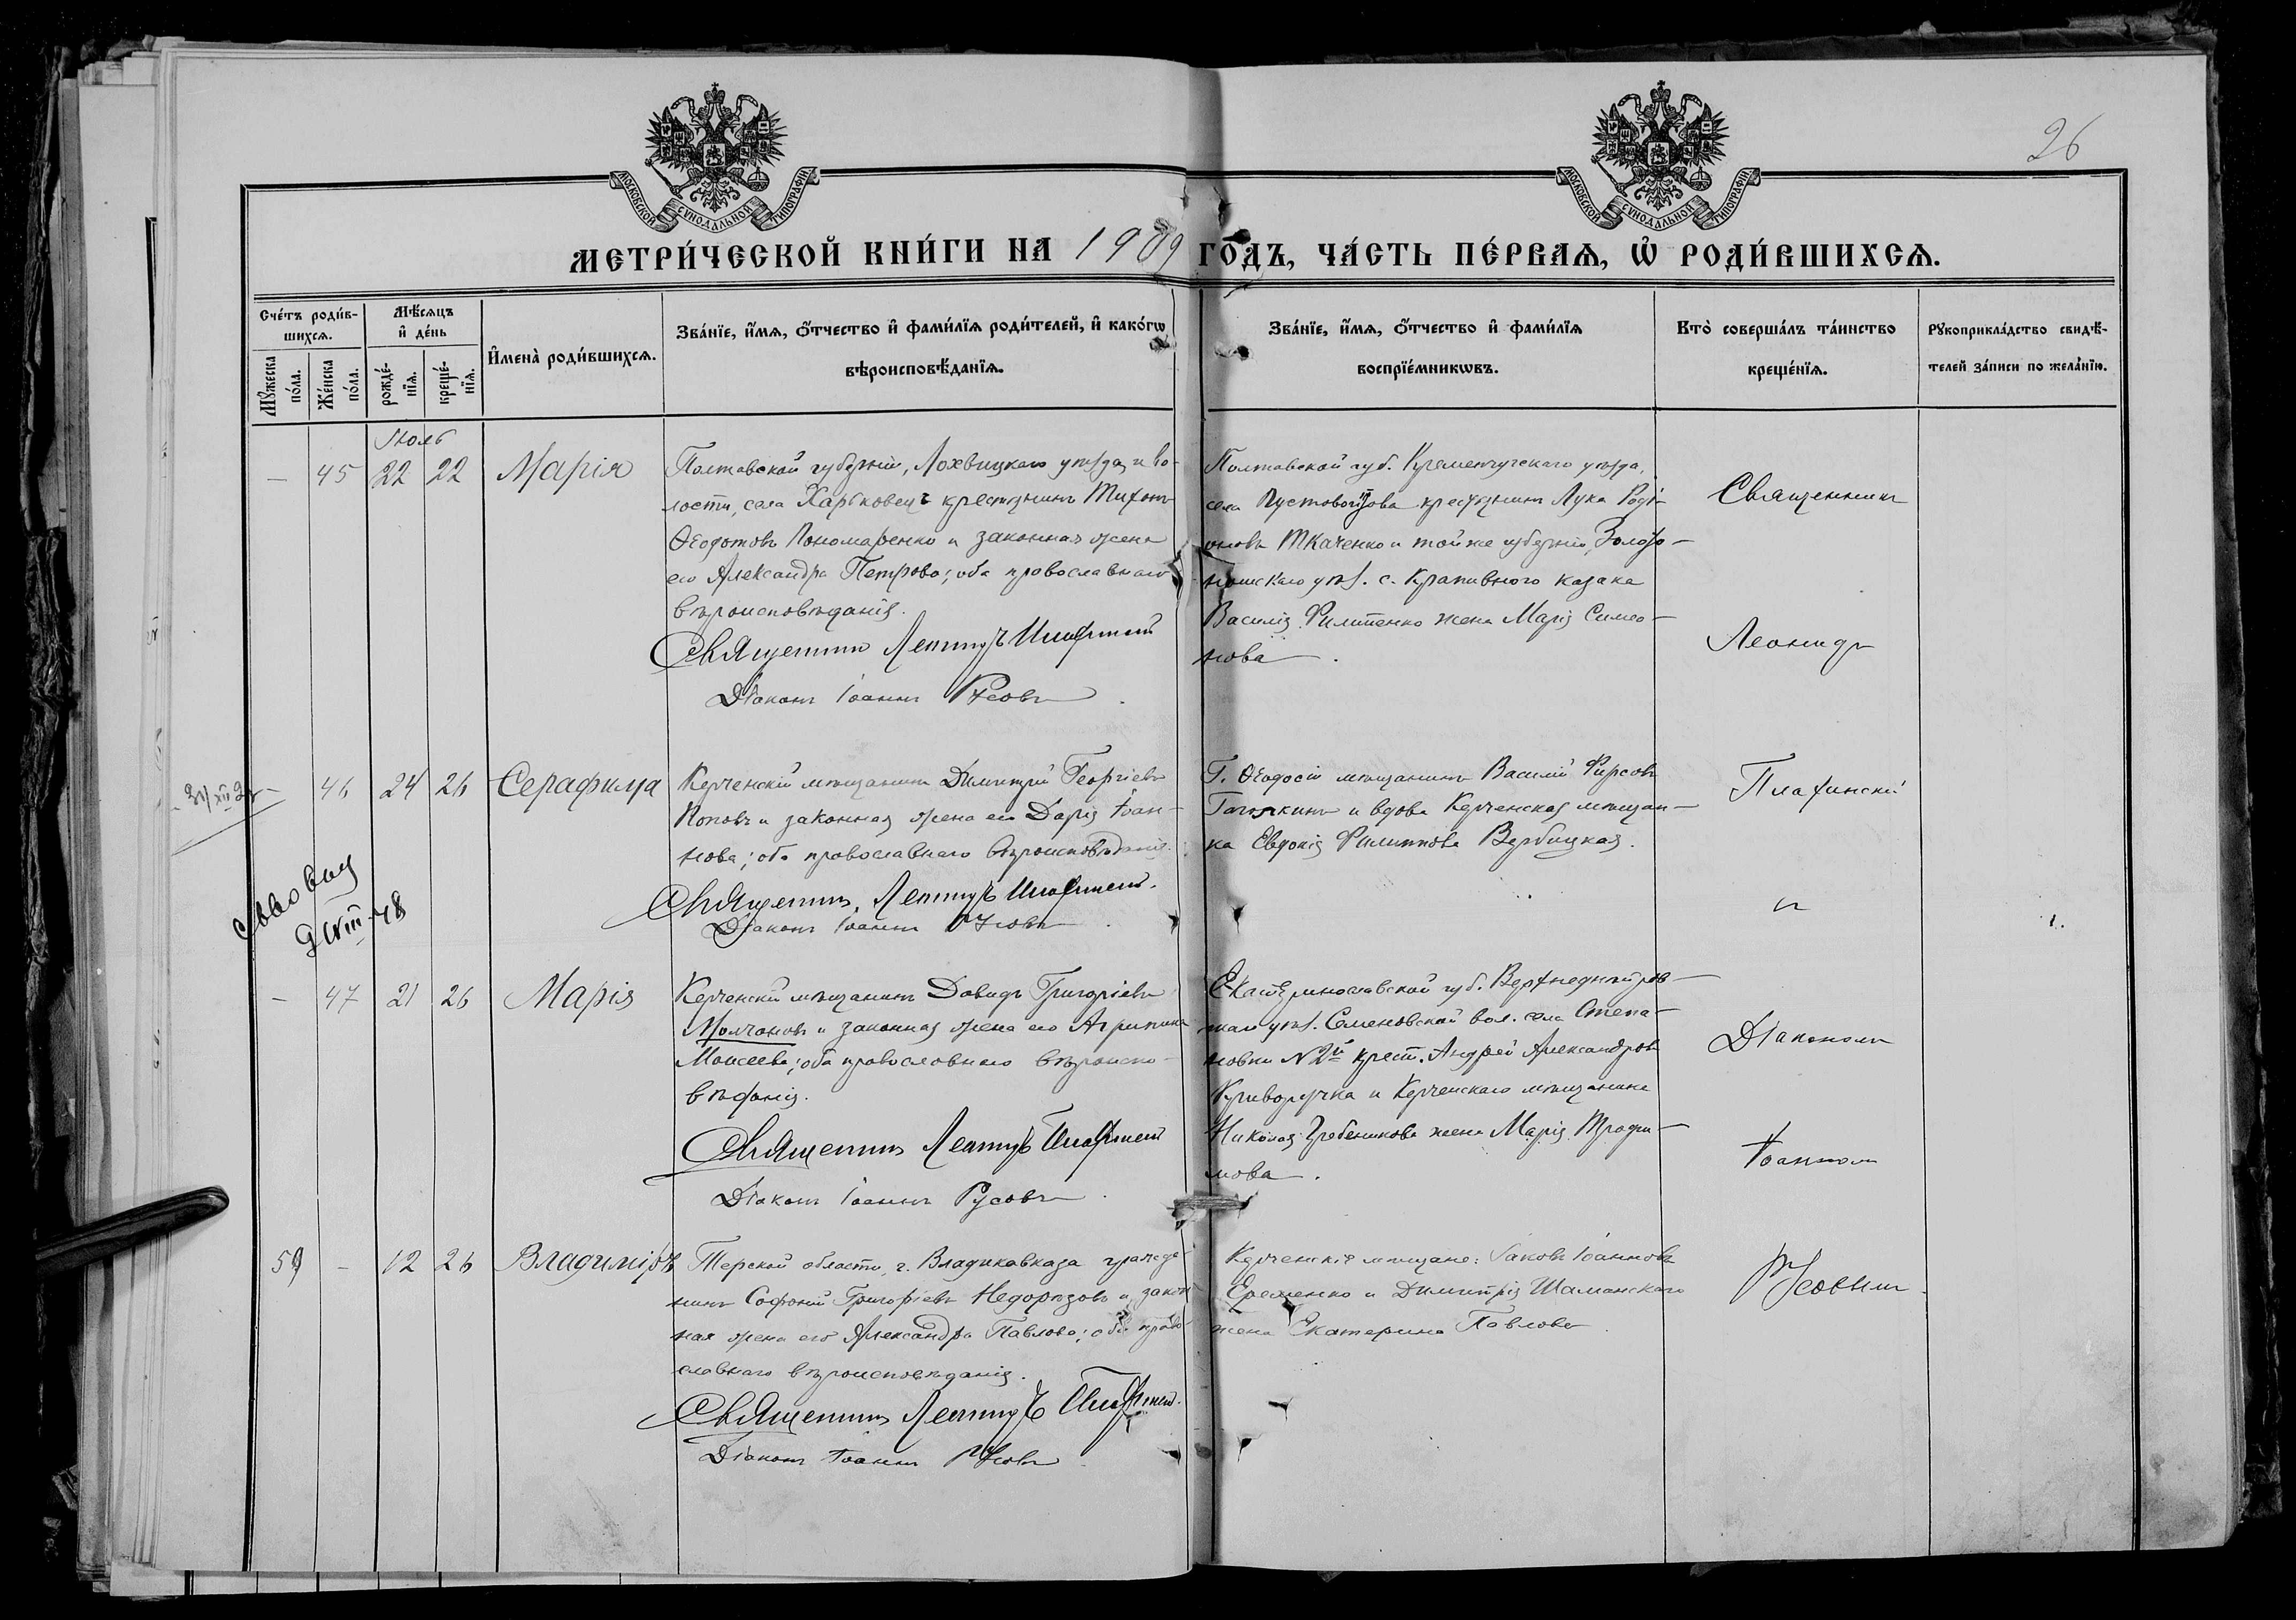 26
МОСКОВСКОЙ СУНОДАЛЬНОЙ ТИПОГРАФІИ
МОСКОВСКОЙ СУНОДАЛЬНОЙ ТИПОГРАФІИ
МЕТРИ́ЧЕСКОЙ КНИ́ГИ НА 1909 ГО́ДЪ, ЧА́СТЬ ПЕ́РВАѦ, Ѡ҆ РОДИ́ВШИХСѦ.
Сче́тъ роди́в-
шихсѧ.
Мꙋ́жеска по́ла.
Же́нска по́ла.
Мѣ́сѧцъ
и҆ де́нь
рожде́-
нїѧ.
креще́-
нїѧ.
И҆мена̀ роди́вшихсѧ.
Зва́нїе, и҆́мѧ, ѻ҆́тчество и҆ фами́лїѧ роди́телей, и҆ како́гѡ
вѣроисповѣ́данїѧ.
Зва́нїе, и҆́мѧ, ѻ҆́тчество и҆ фами́лїѧ
воспрїе́мникѡвъ.
Кто̀ соверша́лъ та́инство
креще́нїѧ.
Рꙋкоприкла́дство свидѣ́-
телей за́писи по жела́нїю.
Іюль
— 45 22 22 Марія
Полтавской губерніи, Лохвицкаго уѣзда, и во-
лости, села Харьковецъ крестьянинъ Тихонъ
Ѳеодотовъ Пономаренко и законная жена
его Александра Петрова; оба православнаго
вѣроисповѣданія.
Священникъ Леонидъ
Діаконъ Іоаннъ Русовъ
Полтавской губ. Кременчугскаго уѣзда,
села Пустовойтова крестьянинъ Лука Роді-
оновъ Ткаченко и той же губерніи, Золото-
ношскаго уѣз. с. Крапивного казака
Василія Филипенко жена Марія Симео-
нова.
Священникъ
Леонидъ
46 24 26 Серафима
Керченскій мѣщанинъ Димитрій Георгіевъ
Поповъ и законная жена его Дарія Іоан-
нова; оба православнаго вѣроисповѣданія.
Священникъ Леонидъ
Діаконъ Іоаннъ Русовъ
Г. Ѳеодосіи мѣщанинъ Василій Фирсовъ
и вдова Керченская мѣщан-
ка Евдокія Филиппова Вербицкая.
и
— 47 21 26 Марія
Керченскій мѣщанинъ Давидъ Григоріевъ
Молчановъ и законная жена его Агрипина
Моисеева; оба православнаго вѣроиспо-
вѣданія.
Священникъ Леонидъ
Діаконъ Іоаннъ Русовъ
Екатеринославской губ. Верхнеднѣпров-
скаго уѣз. Семеновской вол. села Степа-
новки №2й крест. Андрей Александровъ
Криворучка и Керченскаго мѣщанина
Николая Гребенникова жена Марія Трофи-
мова.
Діакономъ
Іоанномъ
59 — 12 26 Владиміръ
Терской области, г. Владикавказа гражда-
нинъ Софоній Григорьевъ Недорѣзовъ и закон-
ная жена его Александра Павлова; оба право-
славнаго вѣроисповѣданія.
Священникъ Леонидъ
Діаконъ Іоаннъ Русовъ
Керченскіе мѣщане: Іаковъ Іоанновъ
Еременко и Димитрія Шаманскаго
жена Екатерина Павлова
Русовымъ